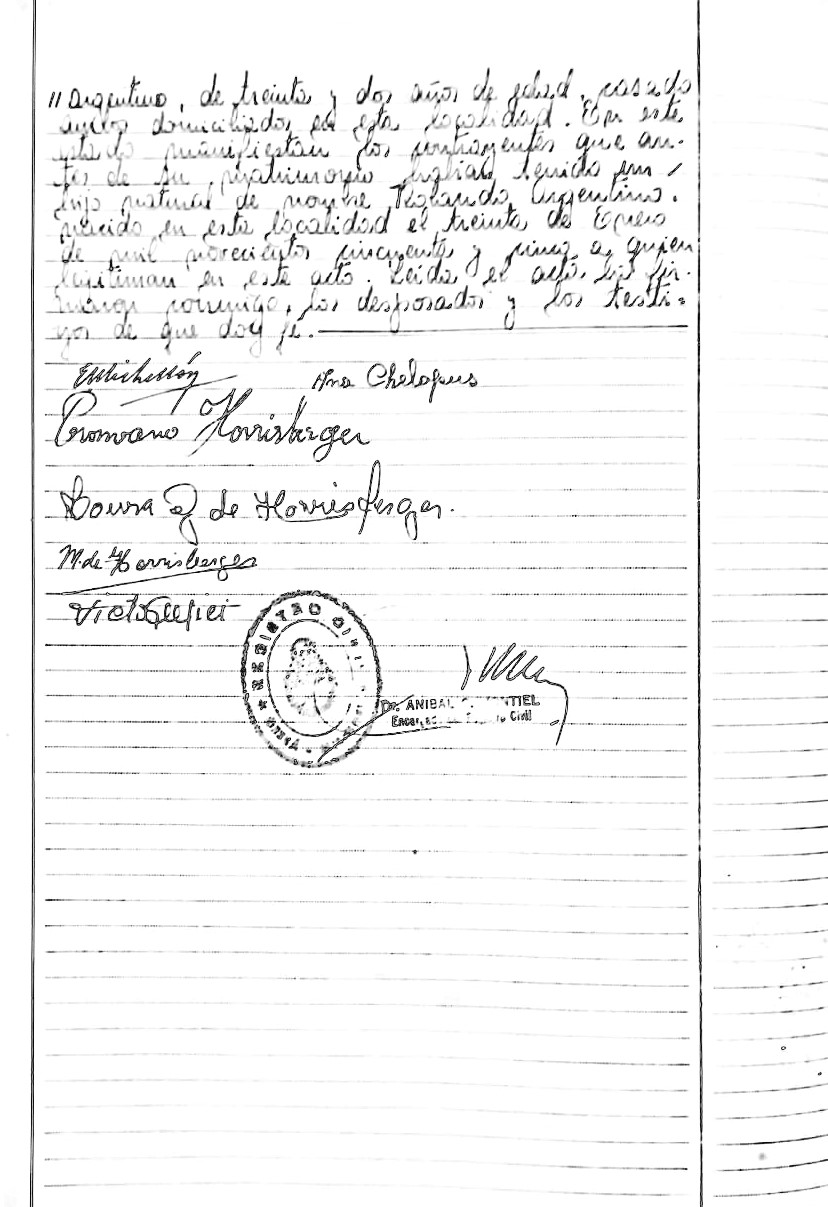 // Argentino, de treinta y dos años de edad, casado
ambos domiciliados en esta localidad. En este
estado manifiestan los contrayentes que an-
tes de su matrimonio habían tenido un /
hijo natural de nombre Rolando, Argentino,
nacido en esta localidad el treinta de Enero
de mil novecientos cincuenta y cinco a quien
legitiman en este acto. Leida el acta la fir-
maron conmigo, los desposados y los testi-
gos de que doy fé.
Ana Chelopus
Horrisberger
de Horrisberger.
M. de Horrisberger
REGISTRO CIVIL
Dr. ANIBAL
Encargado Civil